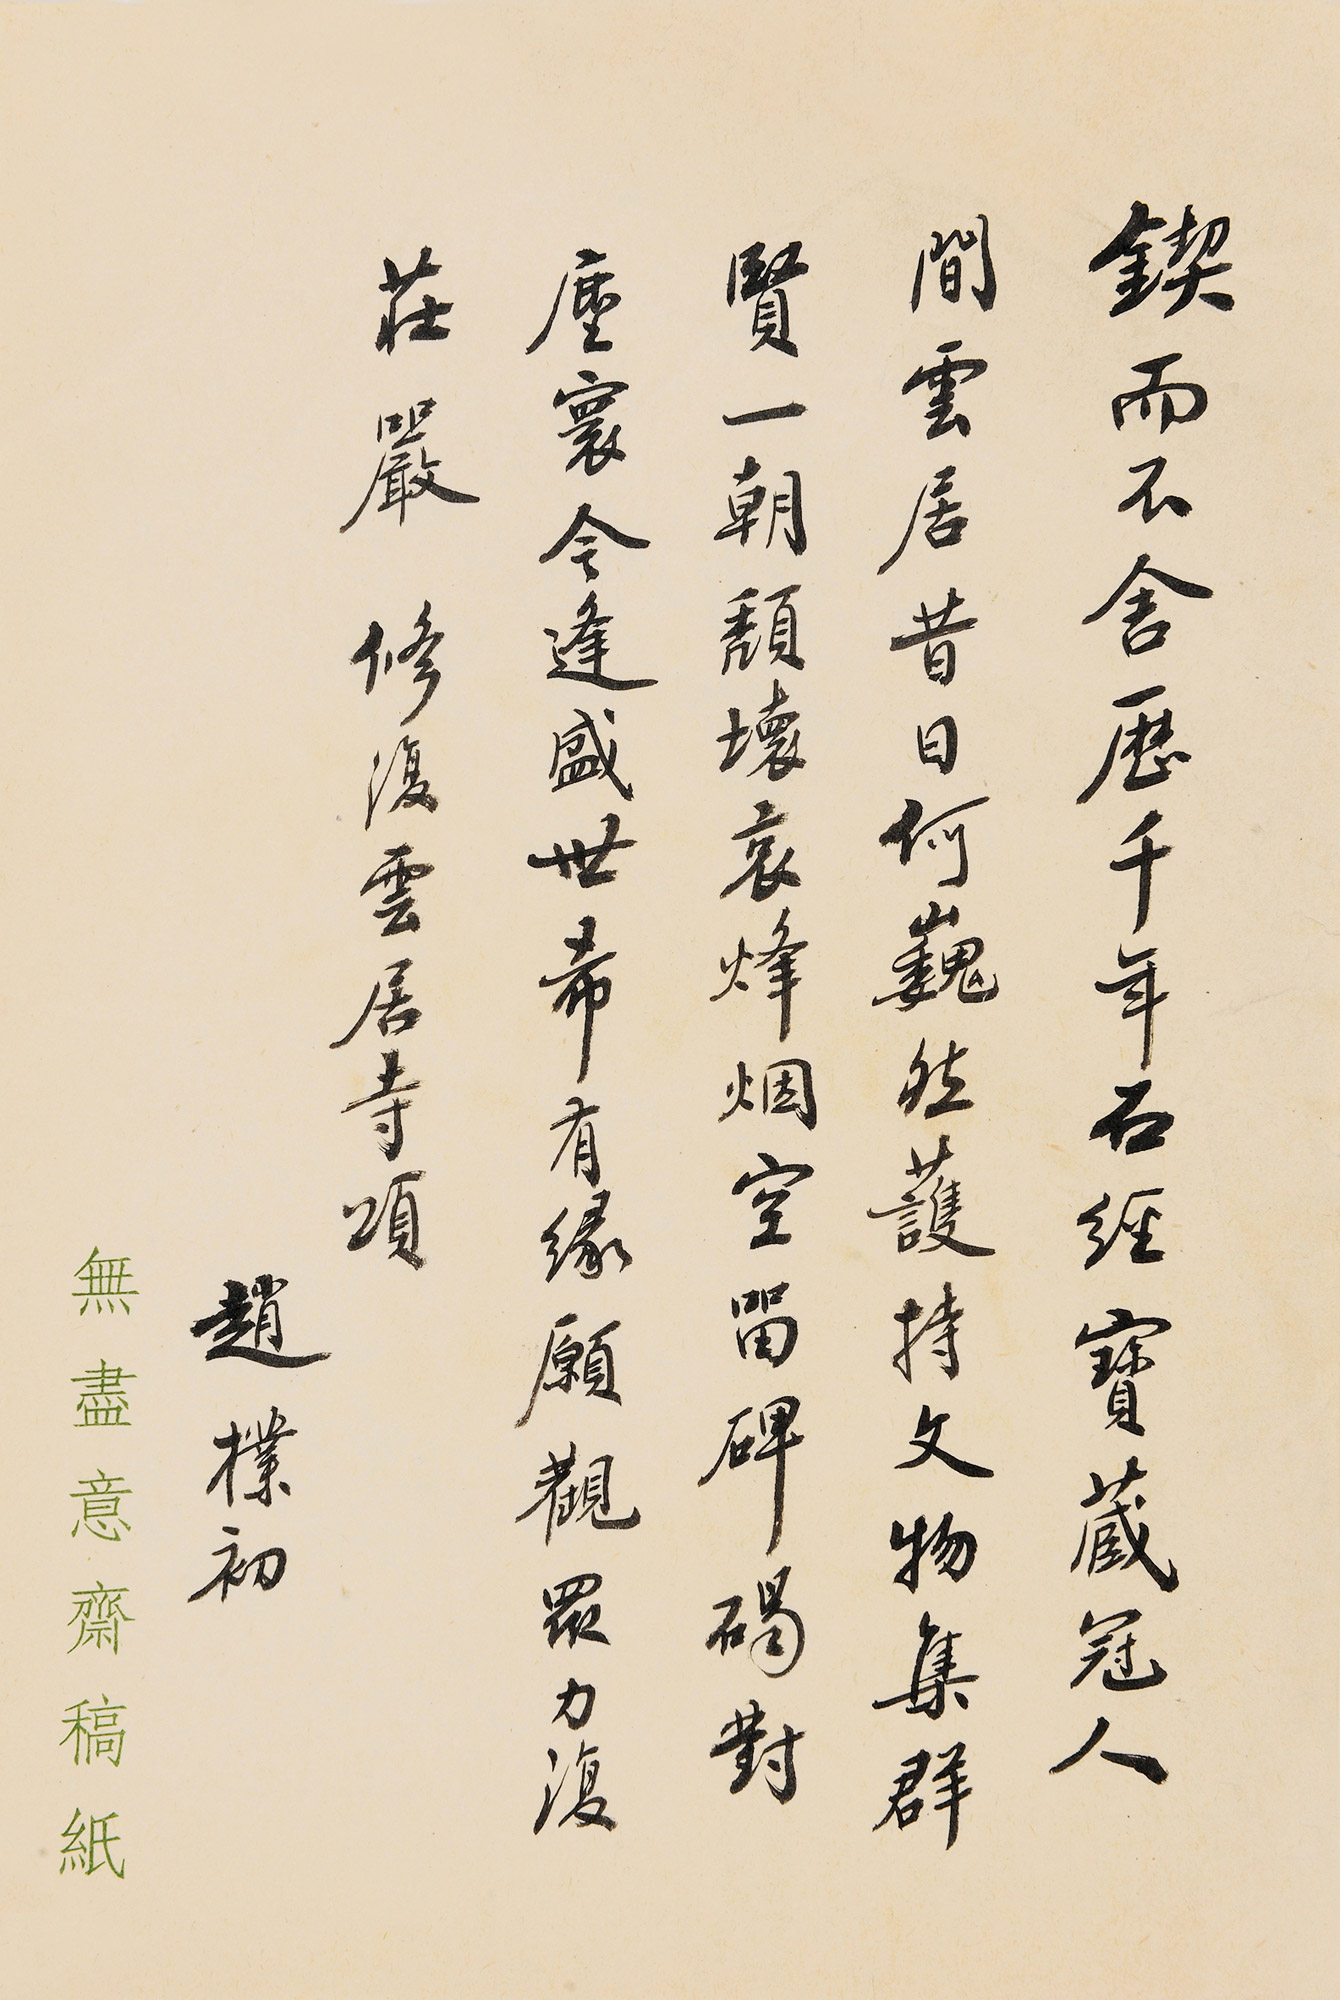 鍥而不舍歷千年石經寶藏冠人
間雲居昔日何巍然護持文物集群
賢一朝頹壞哀烽烟空留碑碣對
塵寰今逢盛世希有緣願觀眾力復
莊嚴 修復雲居寺頌
趙樸初
無盡意齋稿紙